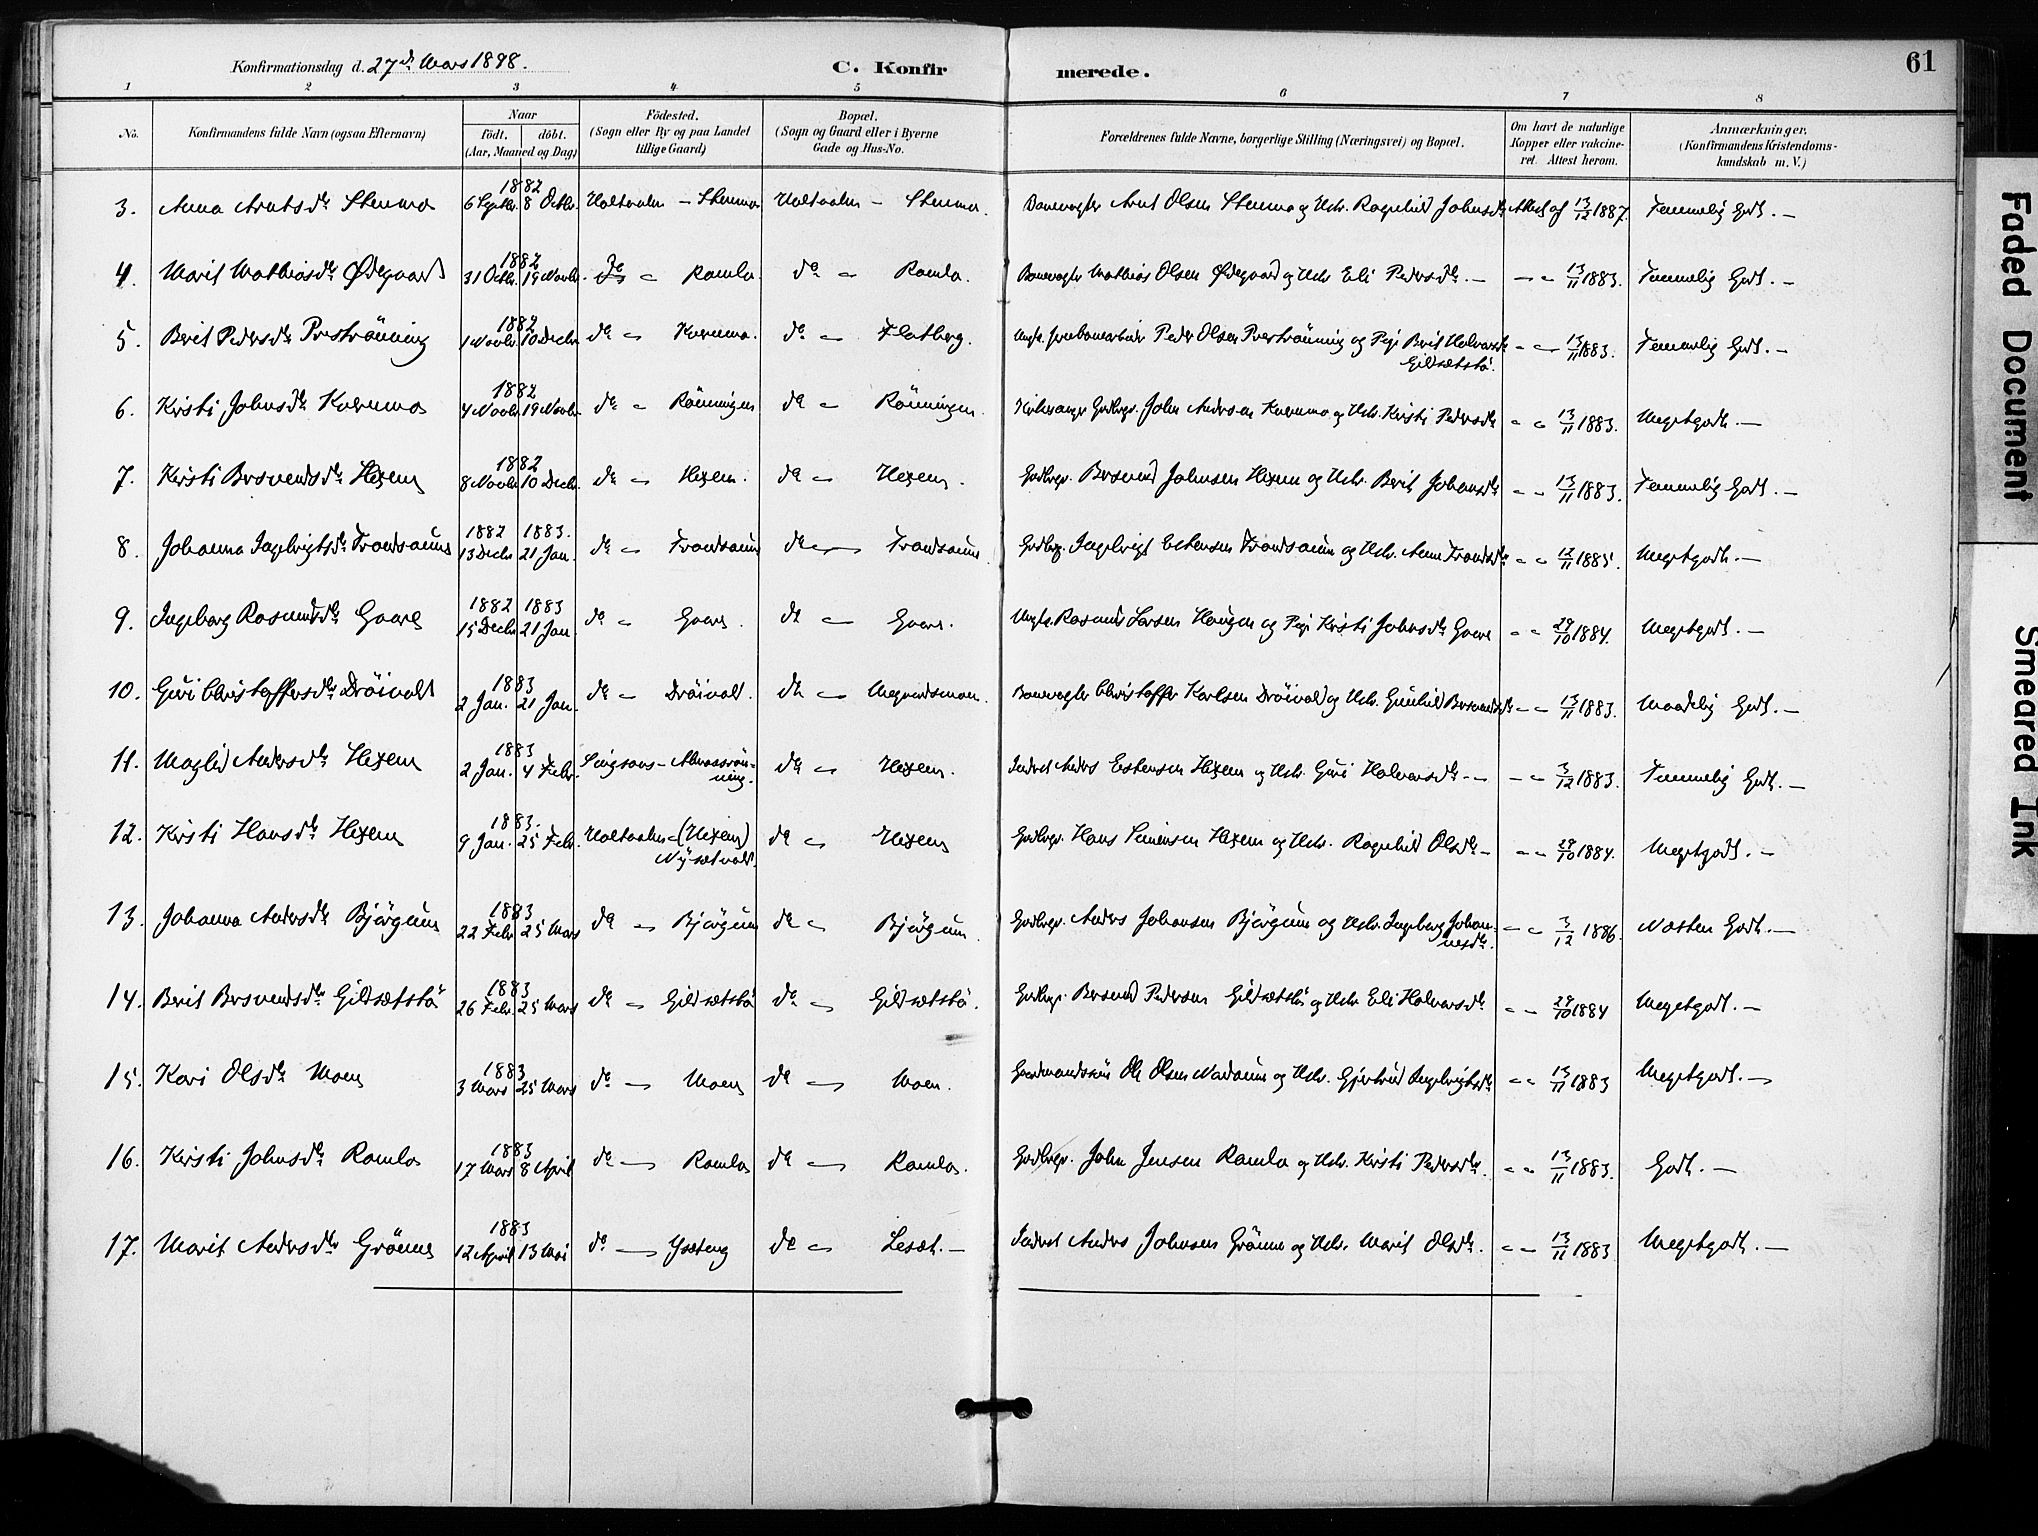 Konfirmationsdag d. 27de Mars 1898.
C. Konfirmerede.
61
1 2 3 4 5 6 7 8
No.
Konfirmandens fulde Navn (ogsaa Efternavn)
Naar
födt. döbt.
(Aar, Maaned og Dag)
Födested.
(Sogn eller By og paa Landet
tillige Gaard)
Bopæl.
(Sogn og Gaard eller i Byerne
Gade og Hus-No.
Forældrenes fulde Navne, borgerlige Stilling (Næringsvei) og Bopæl.
Om havt de naturlige
Kopper eller vakcine-
ret. Attest herom.
Anmærkninger.
(Konfirmandens Kristendoms-
kundskab m. V.)
3. Anna Arntsdtr Stenmo 1882 6 Septbr. 8 Octbr. Holtaalen - Stenmo Holtaalen - Stenmo. Banevogter Arnt Olsen Stenmo og Hstr. Ragnhild Johnsdtr Attest af 13/12 1887. Temmelig Godt. -
4. Marit Mathiasdtr Ødegaard 1882 31 Octbr. 19 Novbr. do - Ramlo. do - Ramlo. Banevogter Mathias Olsen Ødegaard og Hstr. Eli Pedersdtr. - - - 13/11 1883. Temmelig Godt. -
5. Berit Pedersdtr Preströnning 1882 1 Novbr 10 Decbr. do - Kurumo. do - Flatberg. Ungk. Jernbanearbeider Peder Olsen Preströnning og Pige Berit Halvarsdtr
Gildsætstö. - - 13/11 1883. Temmelig Godt. -
6. Kirsti Johnsdtr Kurumo 1882 4 Novbr. 19 Novbr. do - Rönningen do - Rönningen. Kirkesanger Grdbrgr. John Andersen Kurumo og Hstr. Kristi Pedersdtr - - 13/11 1883. Megetgodt. -
7. Kirsti Bersvendsdtr Hexem 1882 8 Novbr 10 Decbr. do - Hexem. do - Hexem. Grdbrgr. Bersvend Johnsen Hexem og Hstr. Berit Johansdtr - - 13/11 1883. Temmelig Godt. -
8. Johanna Ingebrigtsdtr Trondsaune 1882 13 Decbr 1883. 21 Jan. do - Trondsaune do - Trondsaune. Grdbrgr. Ingebrigt Estensen Trondsaune og Hstr. Anne Trondsdtr - - 12/11 1885. Megetgodt. -
9. Ingeborg Rasmusdtr Gaare 1882 15 Decbr 1883 21 Jan. do - Gaare. do - Gaare. Ungk. Rasmus Larsen Haugen og Pige Kristi Johnsdtr Gaare - - 29/10 1884. Megetgodt. -
10. Guri Christoffersdtr Dröivold 1883 2 Jan. 21 Jan. do - Dröivold. do - Megardsmoen. Banevogter Christoffer Karlsen Dröivold og Hstr. Gunhild Bersvendsdtr - - 13/11 1883. Maadelig Godt. -
11. Magled Andersdtr Hexem 1883 2 Jan. 4 Febr. Singsaas - Almaasrön-
ning. do - Hexem. Inderst Anders Estensen Hexem og Hstr. Guri Halvarsdtr - - - - 3/12 1883. Temmelig Godt. -
12. Kirsti Hansdtr Hexem 1883. 9 Jan. 25 Febr. Holtaalen - (Hexem)
Nysætvold. do - Hexem Grdbrgr. Hans Simensen Hexem og Hstr. Ragnhild Olsdtr - - - 29/10 1884. Megetgodt. -
13. Johanna Andersdtr Bjørgum 1883 22 Febr. 25 Mars do - Bjørgum do - Bjørgum. Grdbrgr. Anders Johansen Bjørgum og Hstr. Ingeborg Johan-
nesdtr. - - 3/12 1886. Næsten Godt. -
14. Berit Bersvendsdtr Gildsætstö 1883 26 Febr. 25 Mars do - Gildsætstö do - Gildsætstö. Grdbrgr. Bersvend Pedersen Gildsætstö og Hstr. Eli Halvarsdtr - - 29/10 1884 Megetgodt. -
15. Kari Olsdtr Moen 1883 3 Mars 25 Mars do - Moen do - Moen. Gaardmandssön Ole Olsen Nordaune og Hstr. Gjertrud Ingebrigtsdtr. - - 13/11 1883 Megetgodt. -
16. Kirsti Johnsdtr Ramlo 1883 17 Mars 8 April do - Ramlo do - Ramlo. Grdbrgr. John Jensen Ramlo og Hstr. Kirsti Pedersdtr. - - 13/11 1883. Godt. -
17. Marit Andersdtr Grönne 1883 12 April 13 Mai do - Ysæteng do - Lesæt. - Inderst Anders Johnsen Grönne og Hstr. Marit Olsdtr. - - 13/11 1883 Megetgodt. -
Faded Document
Smeared Ink